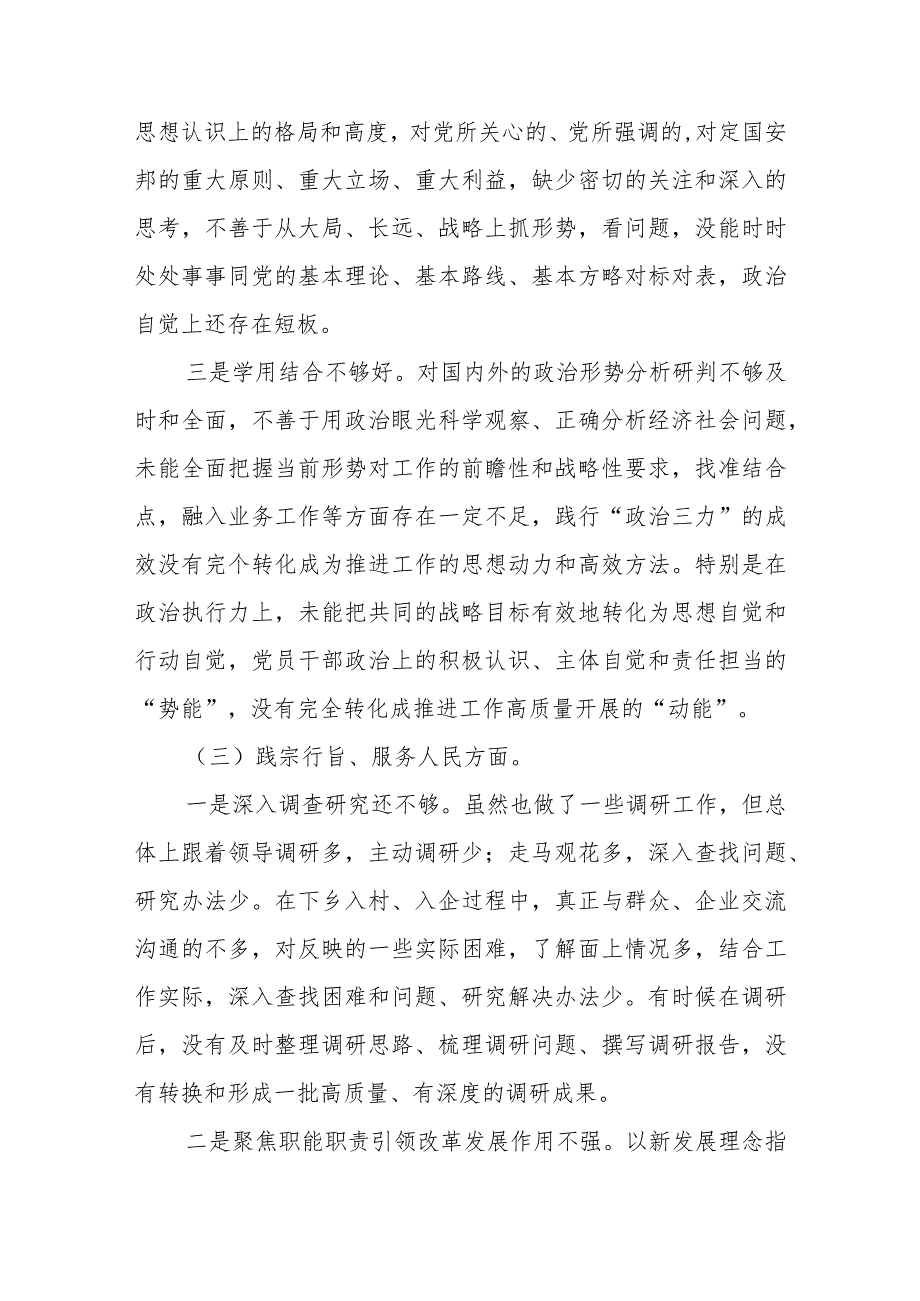 思想认识上的格局和高度，对党所关心的、党所强调的,对定国安
邦的重大原则、重大立场、重大利益，缺少密切的关注和深入的
思考，不善于从大局、长远、战略上抓形势，看问题，没能时时
处处事事同党的基本理论、基本路线、基本方略对标对表，政治
自觉上还存在短板。
三是学用结合不够好。对国内外的政治形势分析研判不够及
时和全面，不善于用政治眼光科学观察、正确分析经济社会问题，
未能全面把握当前形势对工作的前瞻性和战略性要求，找准结合
点，融入业务工作等方面存在一定不足，践行“政治三力”的成
效没有完个转化成为推进工作的思想动力和高效方法。特别是在
政治执行力上，未能把共同的战略目标有效地转化为思想自觉和
行动自觉，党员干部政治上的积极认识、主体自觉和责任担当的
“势能”，没有完全转化成推进工作高质量开展的“动能”。
（三）践宗行旨、服务人民方面。
一是深入调查研究还不够。虽然也做了一些调研工作，但总
体上跟着领导调研多，主动调研少；走马观花多，深入查找问题、
研究办法少。在下乡入村、入企过程中，真正与群众、企业交流
沟通的不多，对反映的一些实际困难，了解面上情况多，结合工
作实际，深入查找困难和问题、研究解决办法少。有时候在调研
后，没有及时整理调研思路、梳理调研问题、撰写调研报告，没
有转换和形成一批高质量、有深度的调研成果。
二是聚焦职能职责引领改革发展作用不强。以新发展理念指